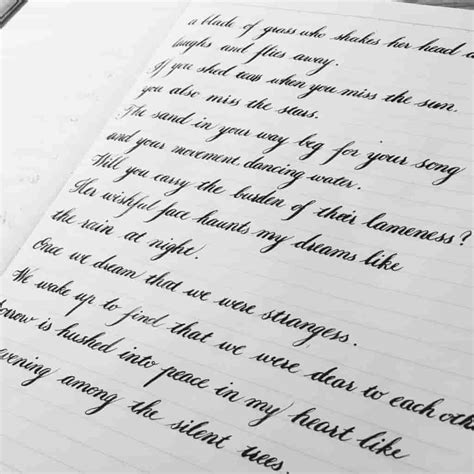 a blade of grass who shakes her head a
laughs and flies away.
If you shed tears when you miss the sun
you also miss the stars.
The sand in your way beg for your song
and your movement, dancing water.
Will you carry the burden of their lameness?
Her wishful face haunts my dreams like
the rain at night.
Once we dream that we were strangers.
We wake up to find that we were dear to each othe
orrow is hushed into peace in my heart like
evening among the silent trees.